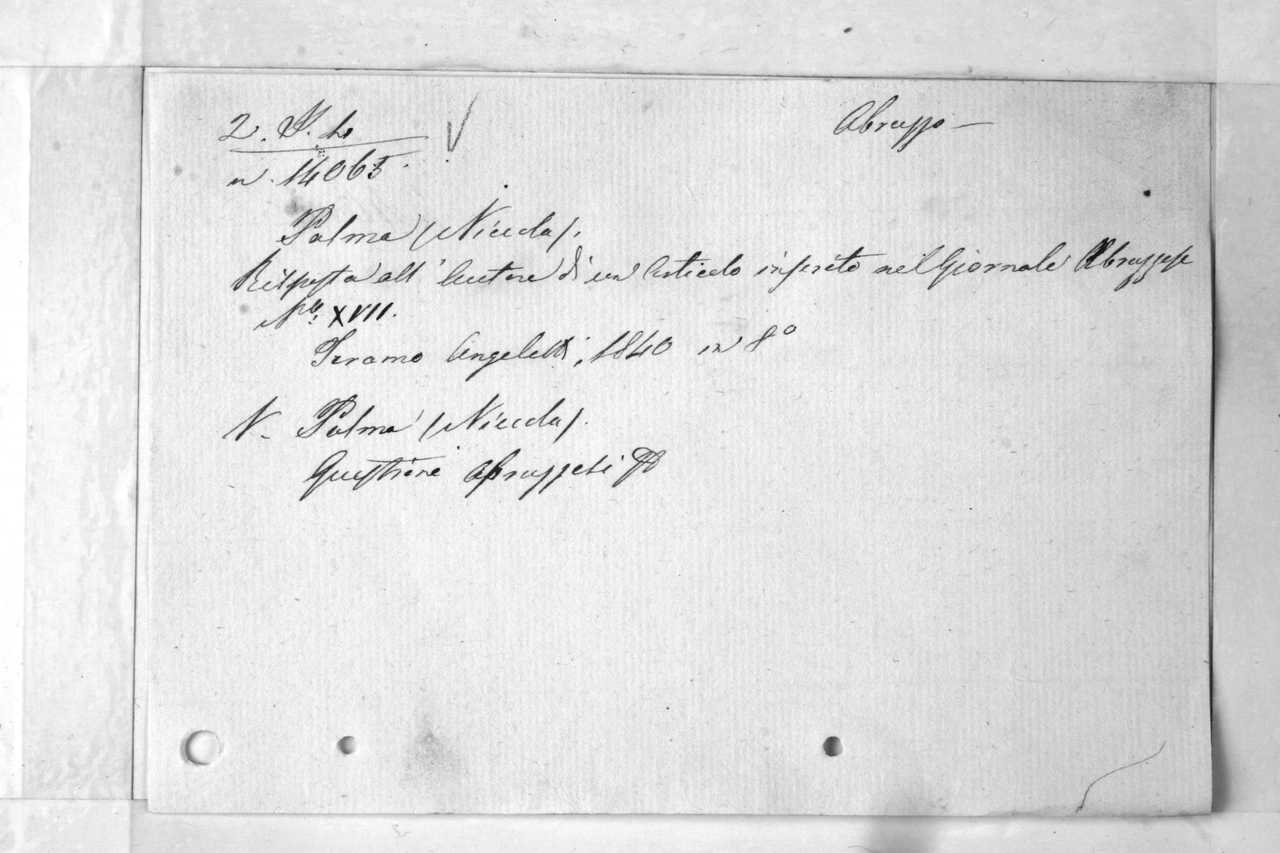 Abruzzo —
2.
n. 14065.
Palma (Niccola).
Risposta all'Autore di un Articolo inserito nel Giornale Abruzzese
Nº. XVII.
Teramo Angeletti, 1840 in 8º
V. Palma (Niccola).
Questioni Abruzzesi